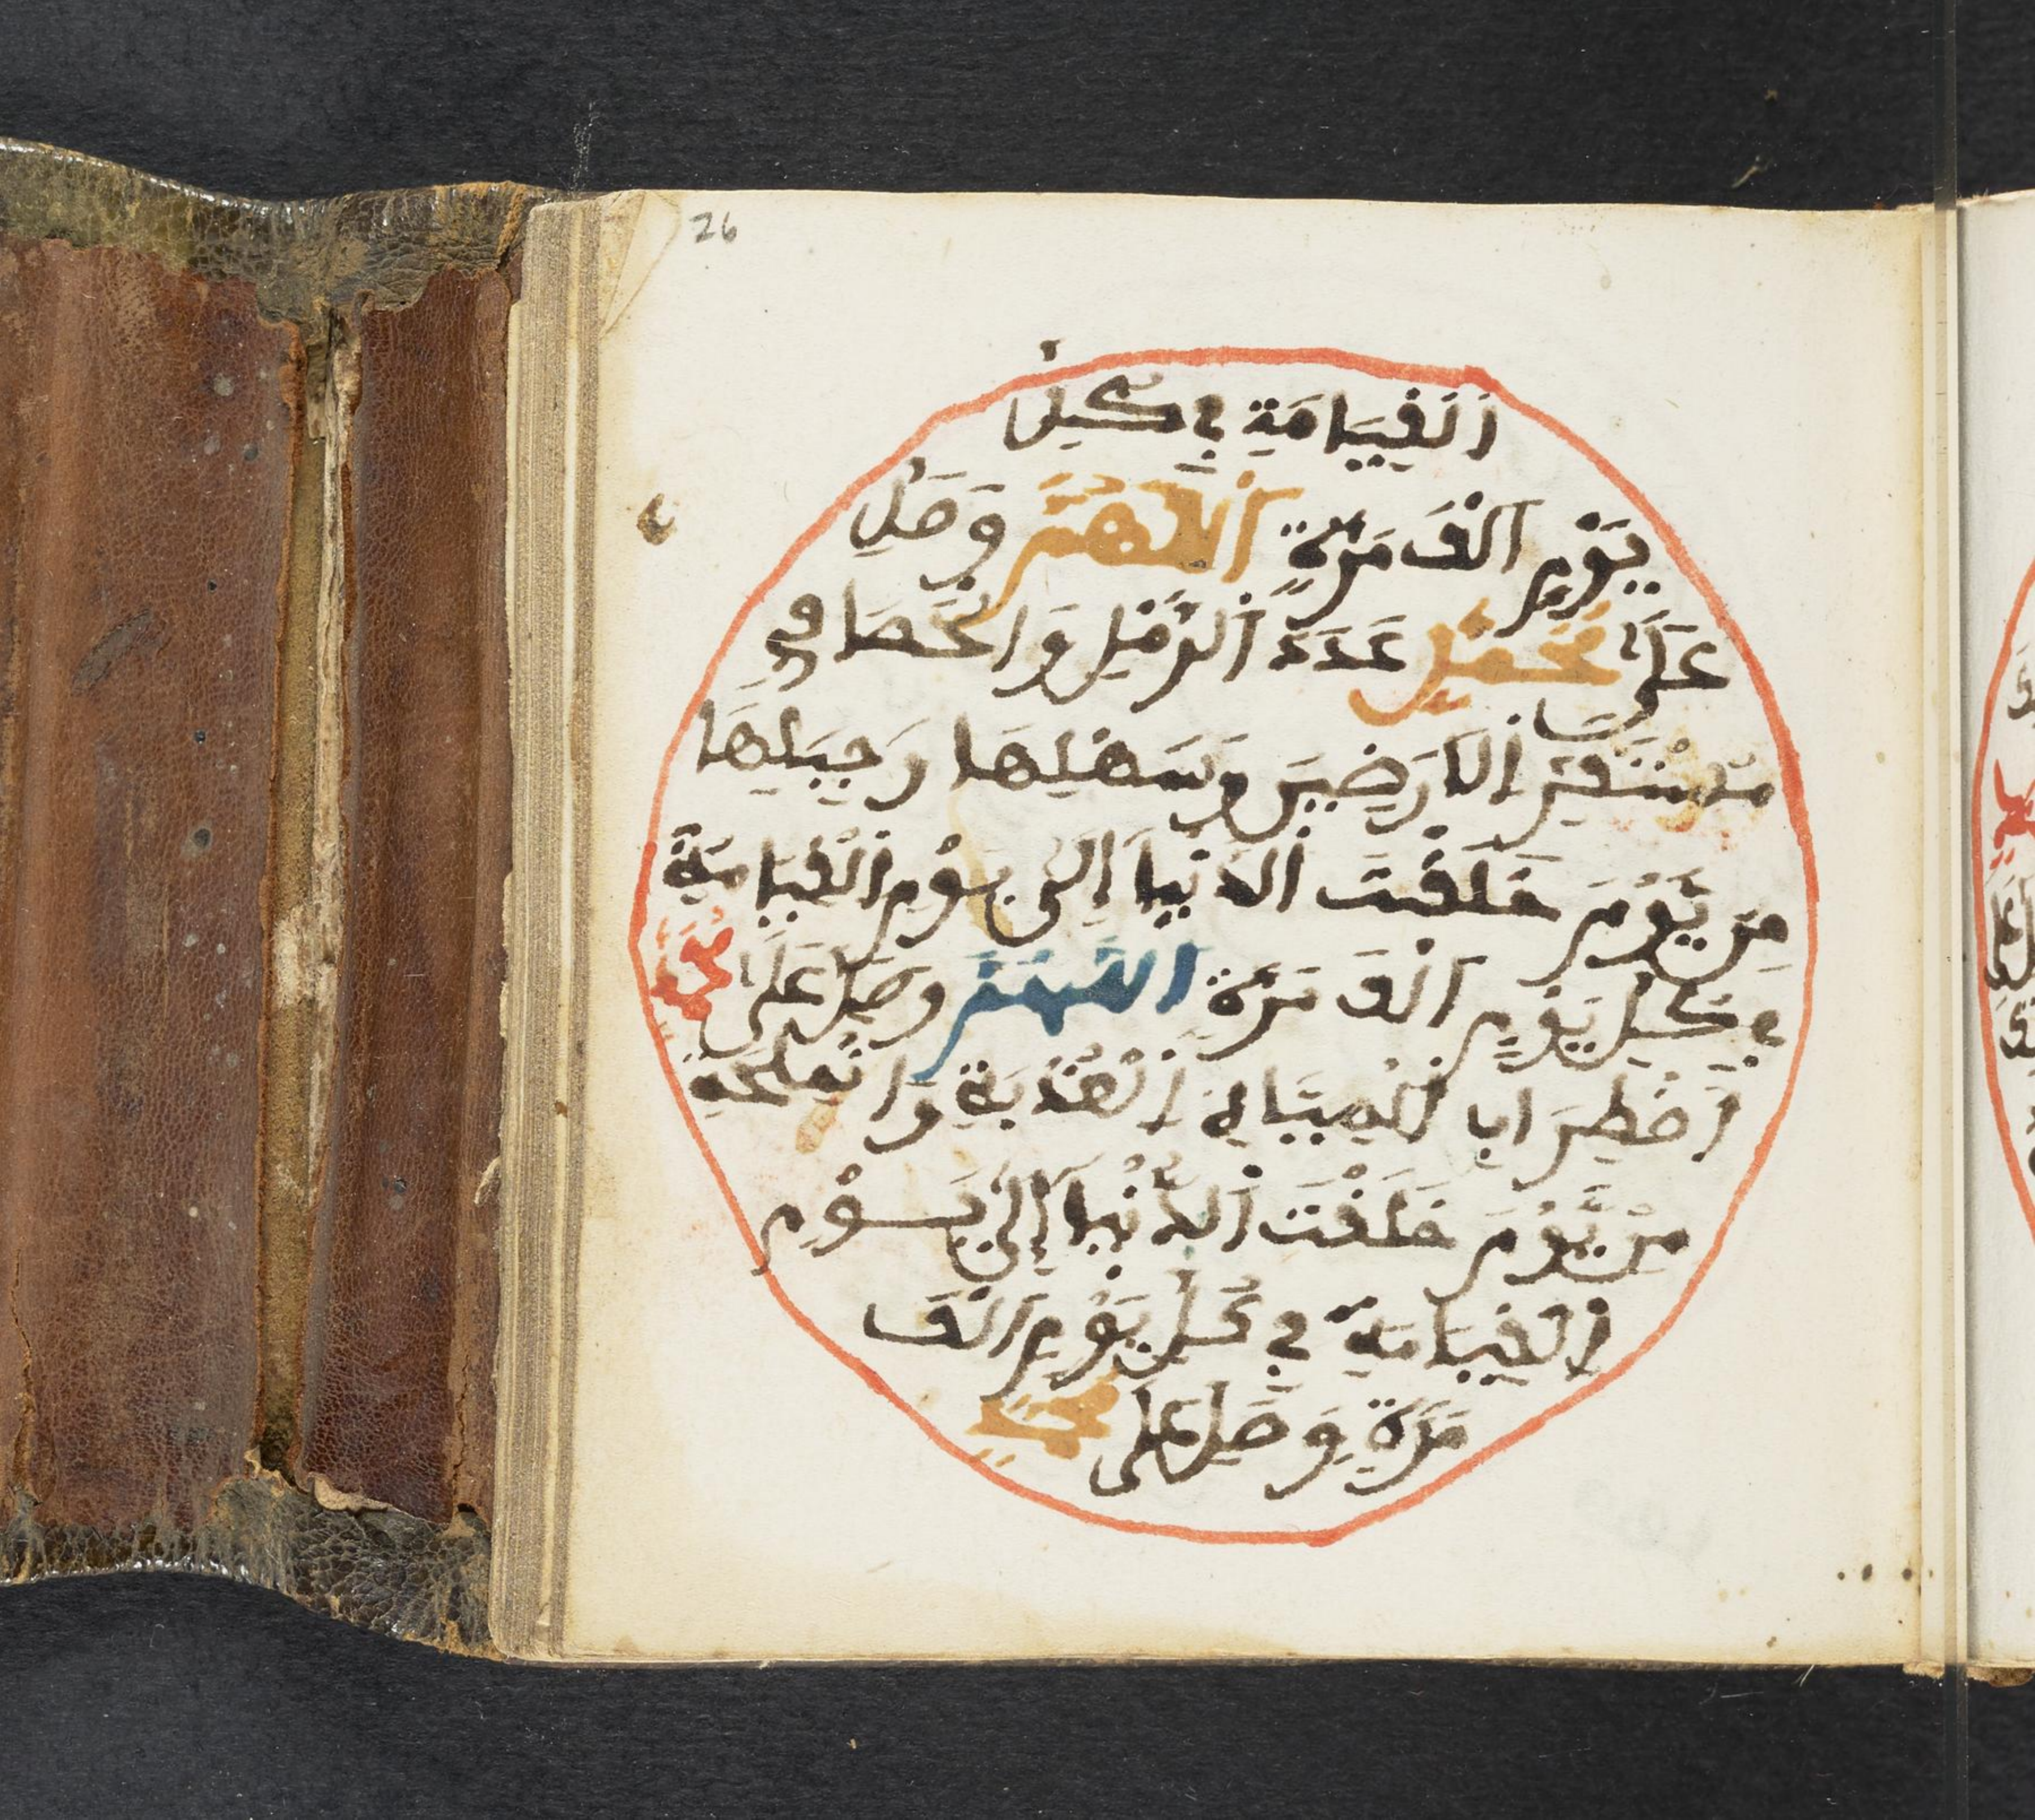 26
اَلْقِيَامَةِ فِي كُلِّ
يَوْمٍ اَلْفَ مَرَّةٍ اَللَّهُمَّ وَصَلِّ
عَلَى مُحَمَّدٍ عَدَدَ اَلرَّمْلِ وَالْحَصَا فِي
مُسْتَقَرِّ اَلَارَضِينَ وَسَهْلِهَا وَجِبَلِهَا
مِنْ يَّوْمَ خَلَقْتَ اَلدُّنْيَا اِلَى يَوْمِ اَلْقِيَامَةِ
فِي كُلِّ يَوْمٍ اَلْفَ مَرَّةٍ اللَّهُمَّ وَصَلِّ عَلَى مُحَمَّدٍ
اَضْطِرَابِ اَلْمِيَاهِ اَلْعَذْبَةِ وَالْمِلْحَةِ
مِنْ يَّوْمَ خَلَقْتَ اَلدُّنْيَا اِلَى يَوْمِ
اَلْقِيَامَةِ فِي كُلِّ يَوْمٍ اَلْفَ
مَرَّةٍ وَصَلِّ عَلَى مُحَمَّدٍ